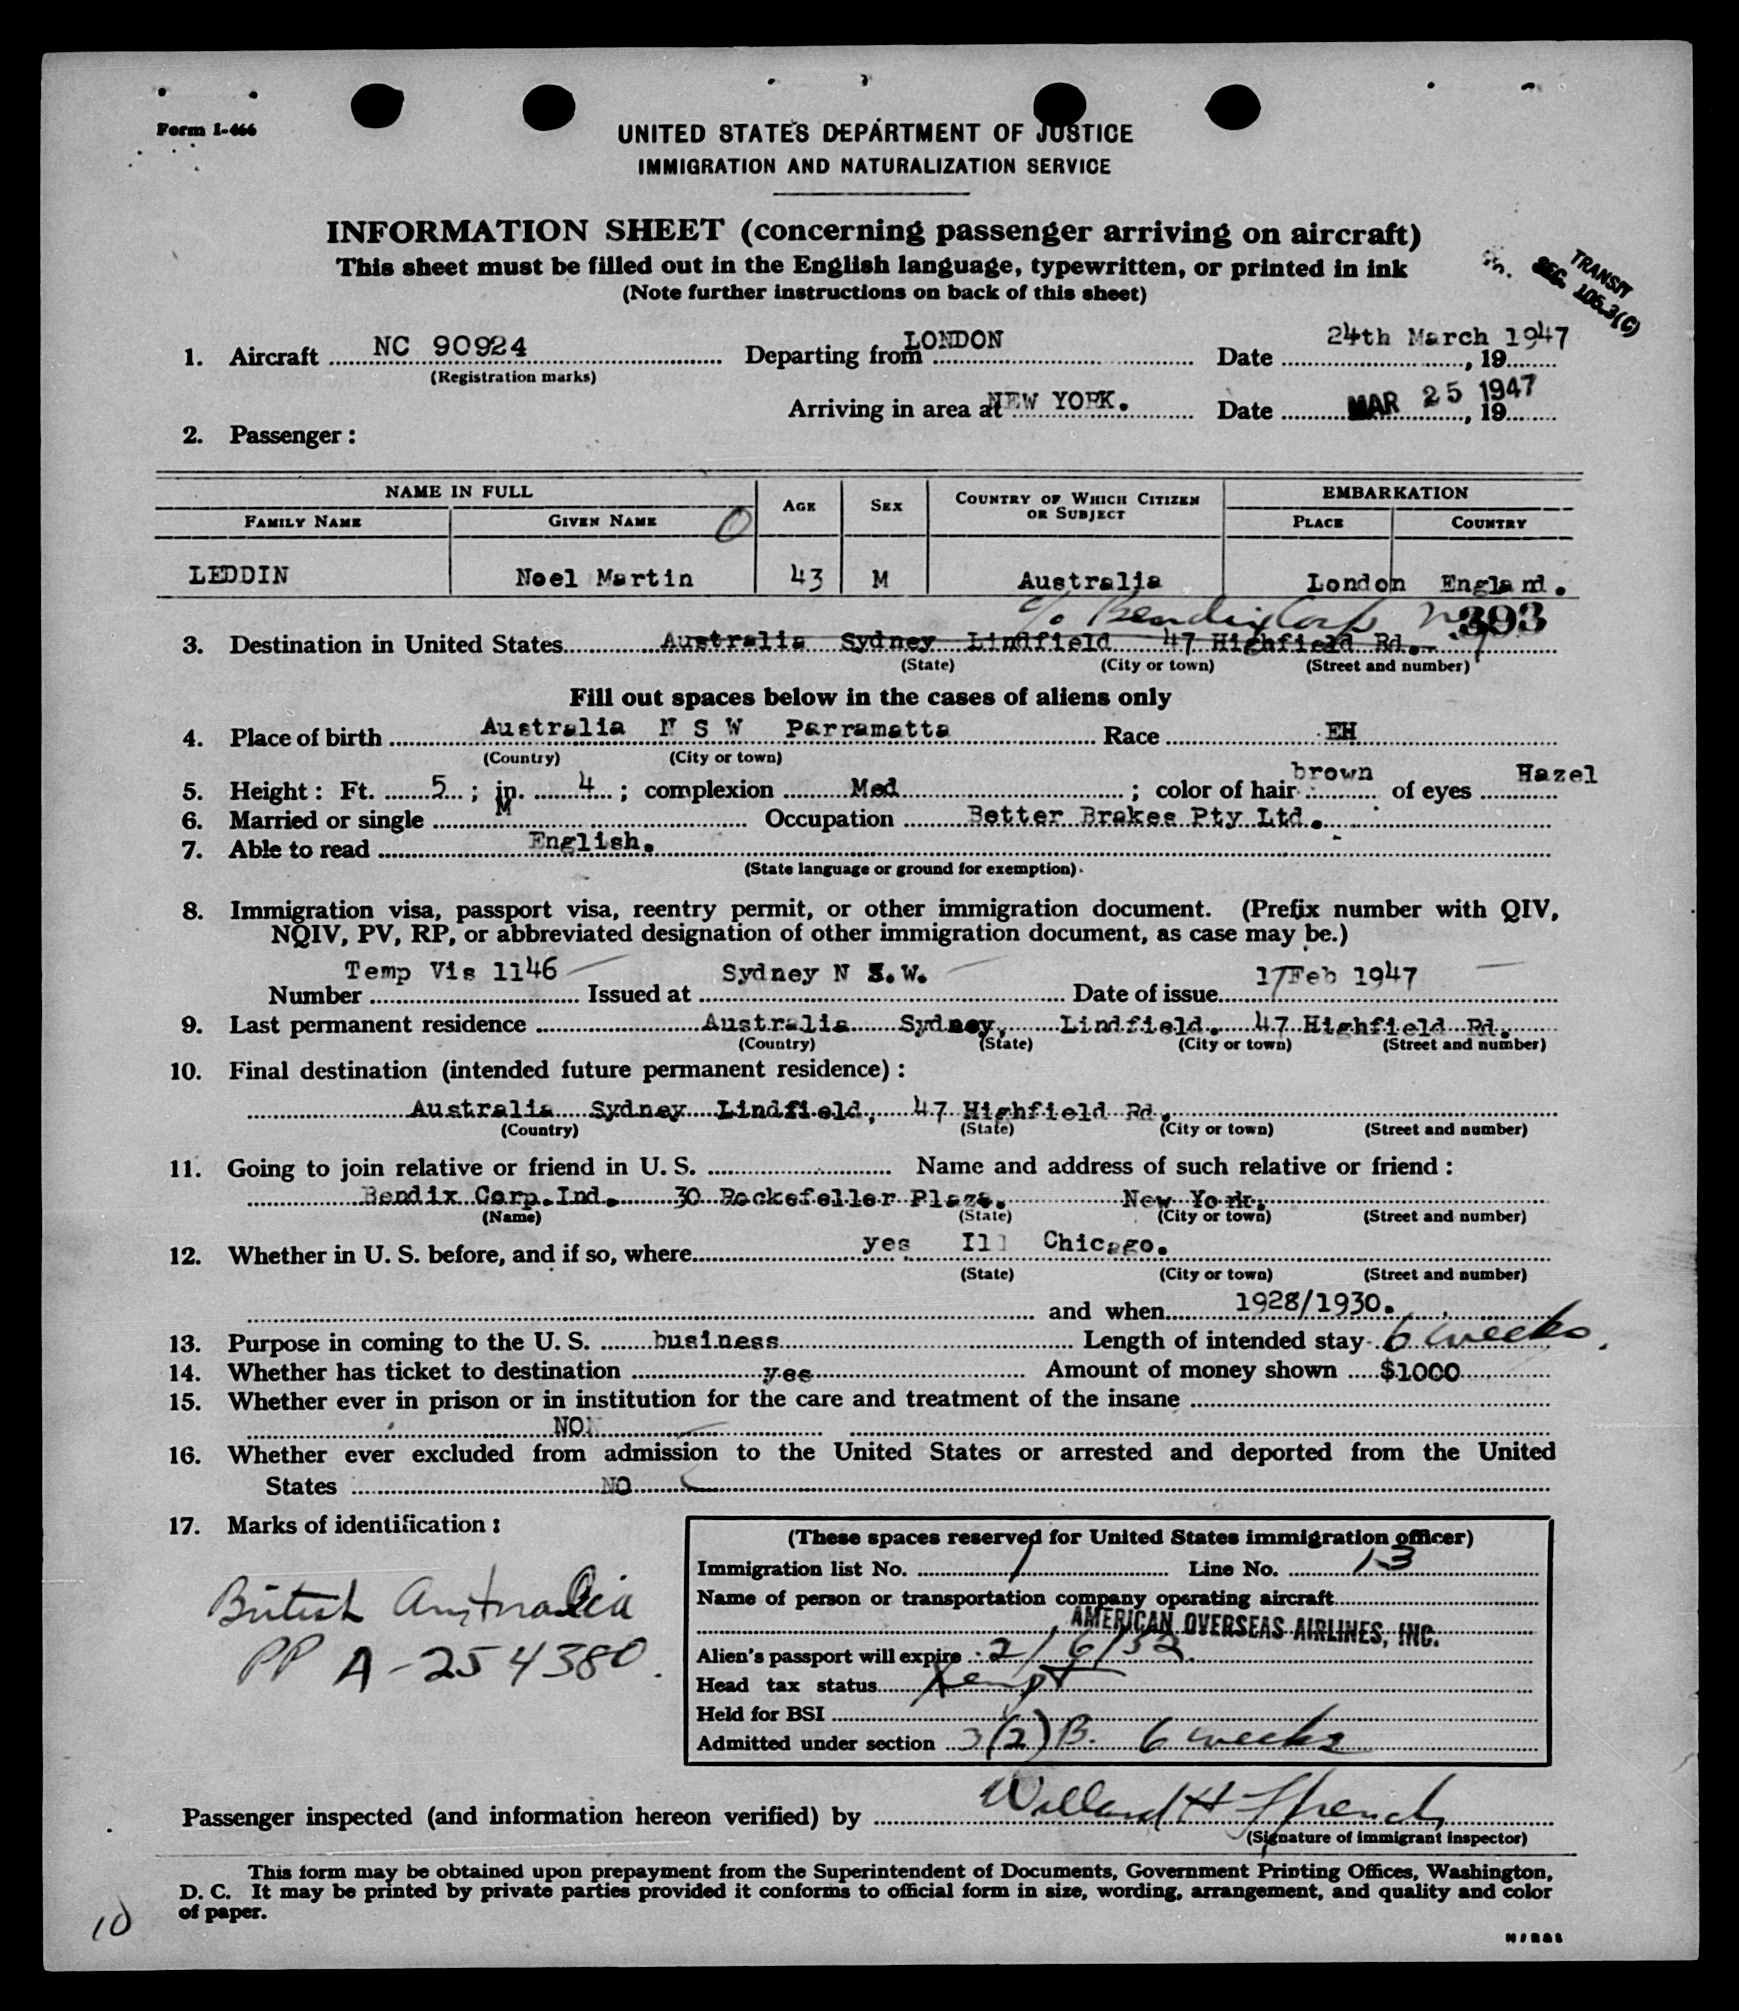 Form I-466
UNITED STATES DEPARTMENT OF JUSTICE
IMMIGRATION AND NATURALIZATION SERVICE
INFORMATION SHEET (concerning passenger arriving on aircraft)
This sheet must be filled out in the English language, typewritten, or printed in ink
(Note further instructions on back of this sheet)
TRANSIT
SEC. 105.3(C)
1. Aircraft NC 90924 Departing from LONDON Date 24th March 1947, 19
(Registration marks)
Arriving in area at NEW YORK. Date MAR 25 1947, 19
2. Passenger:
NAME IN FULL AGE SEX COUNTRY OF WHICH CITIZEN OR SUBJECT EMBARKATION
FAMILY NAME GIVEN NAME PLACE COUNTRY
LEDDIN Noel Martin 43 M Australia London England.
c/o Bendix Corp NY 393
3. Destination in United States Australia Sydney Lindfield 47 Highfield Rd.
(State) (City or town) (Street and number)
Fill out spaces below in the cases of aliens only
4. Place of birth Australia N S W Parramatta Race EH
(Country) (City or town)
5. Height: Ft. 5; in. 4; complexion Med; color of hair brown of eyes Hazel
6. Married or single M Occupation Better Brakes Pty Ltd.
7. Able to read English.
(State language or ground for exemption)
8. Immigration visa, passport visa, reentry permit, or other immigration document. (Prefix number with QIV,
NQIV, PV, RP, or abbreviated designation of other immigration document, as case may be.)
Number Temp Vis 1146 Issued at Sydney N S.W. Date of issue 17Feb 1947
9. Last permanent residence Australia Sydney, Lindfield. 47 Highfield Rd.
(Country) (State) (City or town) (Street and number)
10. Final destination (intended future permanent residence):
Australia Sydney Lindfield, 47 Highfield Rd.
(Country) (State) (City or town) (Street and number)
11. Going to join relative or friend in U. S. Name and address of such relative or friend:
Bendix Corp.Ind. 30 Rockefeller Plaza. New York.
(Name) (State) (City or town) (Street and number)
12. Whether in U. S. before, and if so, where yes Ill Chicago.
(State) (City or town) (Street and number)
and when 1928/1930.
13. Purpose in coming to the U. S. business Length of intended stay 6 weeks.
14. Whether has ticket to destination yes Amount of money shown $1000
15. Whether ever in prison or in institution for the care and treatment of the insane
NO
16. Whether ever excluded from admission to the United States or arrested and deported from the United
States NO
17. Marks of identification:
British Australia
PP A-254380.
(These spaces reserved for United States immigration officer)
Immigration list No. 1 Line No. 13
Name of person or transportation company operating aircraft
AMERICAN OVERSEAS AIRLINES, INC.
Alien's passport will expire 2/6/52.
Head tax status Xempt
Held for BSI
Admitted under section 3(2)B. 6 weeks
Passenger inspected (and information hereon verified) by Willard H Ffrench
(Signature of immigrant inspector)
This form may be obtained upon prepayment from the Superintendent of Documents, Government Printing Offices, Washington,
D. C. It may be printed by private parties provided it conforms to official form in size, wording, arrangement, and quality and color
of paper.
10